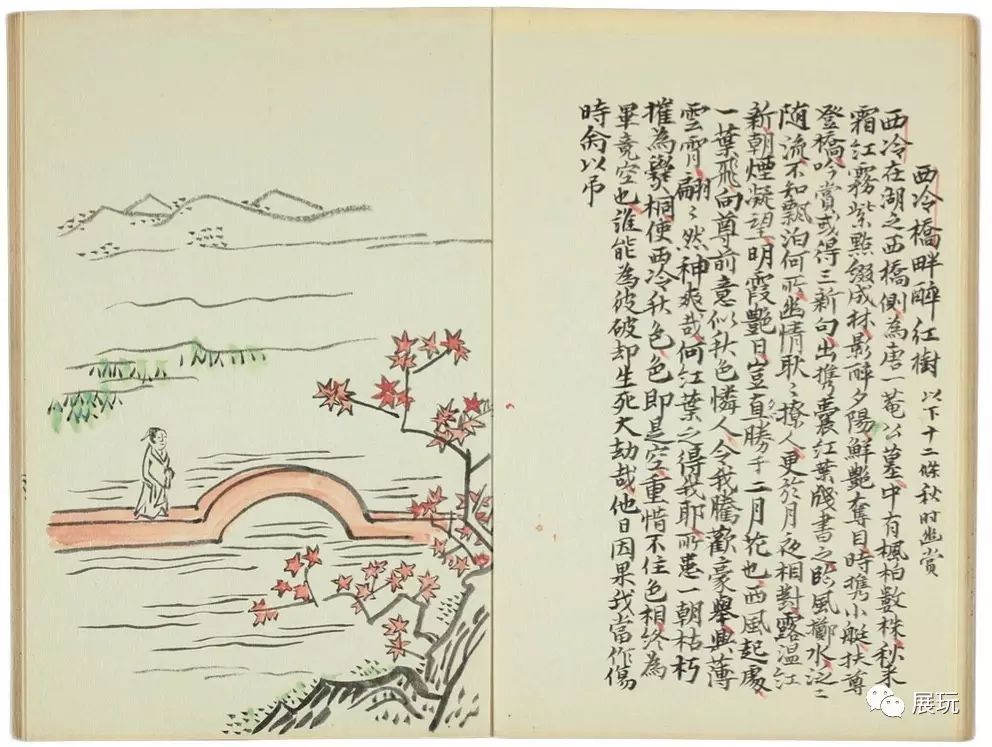 西冷橋畔醉紅樹 以下十二條秋时幽賞
西冷在湖之西橋側為唐一菴公墓中有楓柏數株秋来
霜紅霧紫點綴成林影醉夕陽鮮艷奪目時携小艇扶尊
登橋吟賞或得三新句出携囊紅葉牋書之臨風擲水泛〻
随流不知飄泊何所幽情耿〻撩人更於月夜相對露温紅
新朝煙凝望明霞艷日豈直勝于二月花也西風起處
一葉飛向尊前意似秋色憐人令我騰歡豪舉興薄
雲霄翩〻然神爽哉何紅葉之得我耶所患一朝枯朽
摧為爨桐使西冷秋色色即是空重惜不住色相終為
畢竟空也誰能為彼破却生死大劫哉他日因果我當作傷
時以吊
展玩